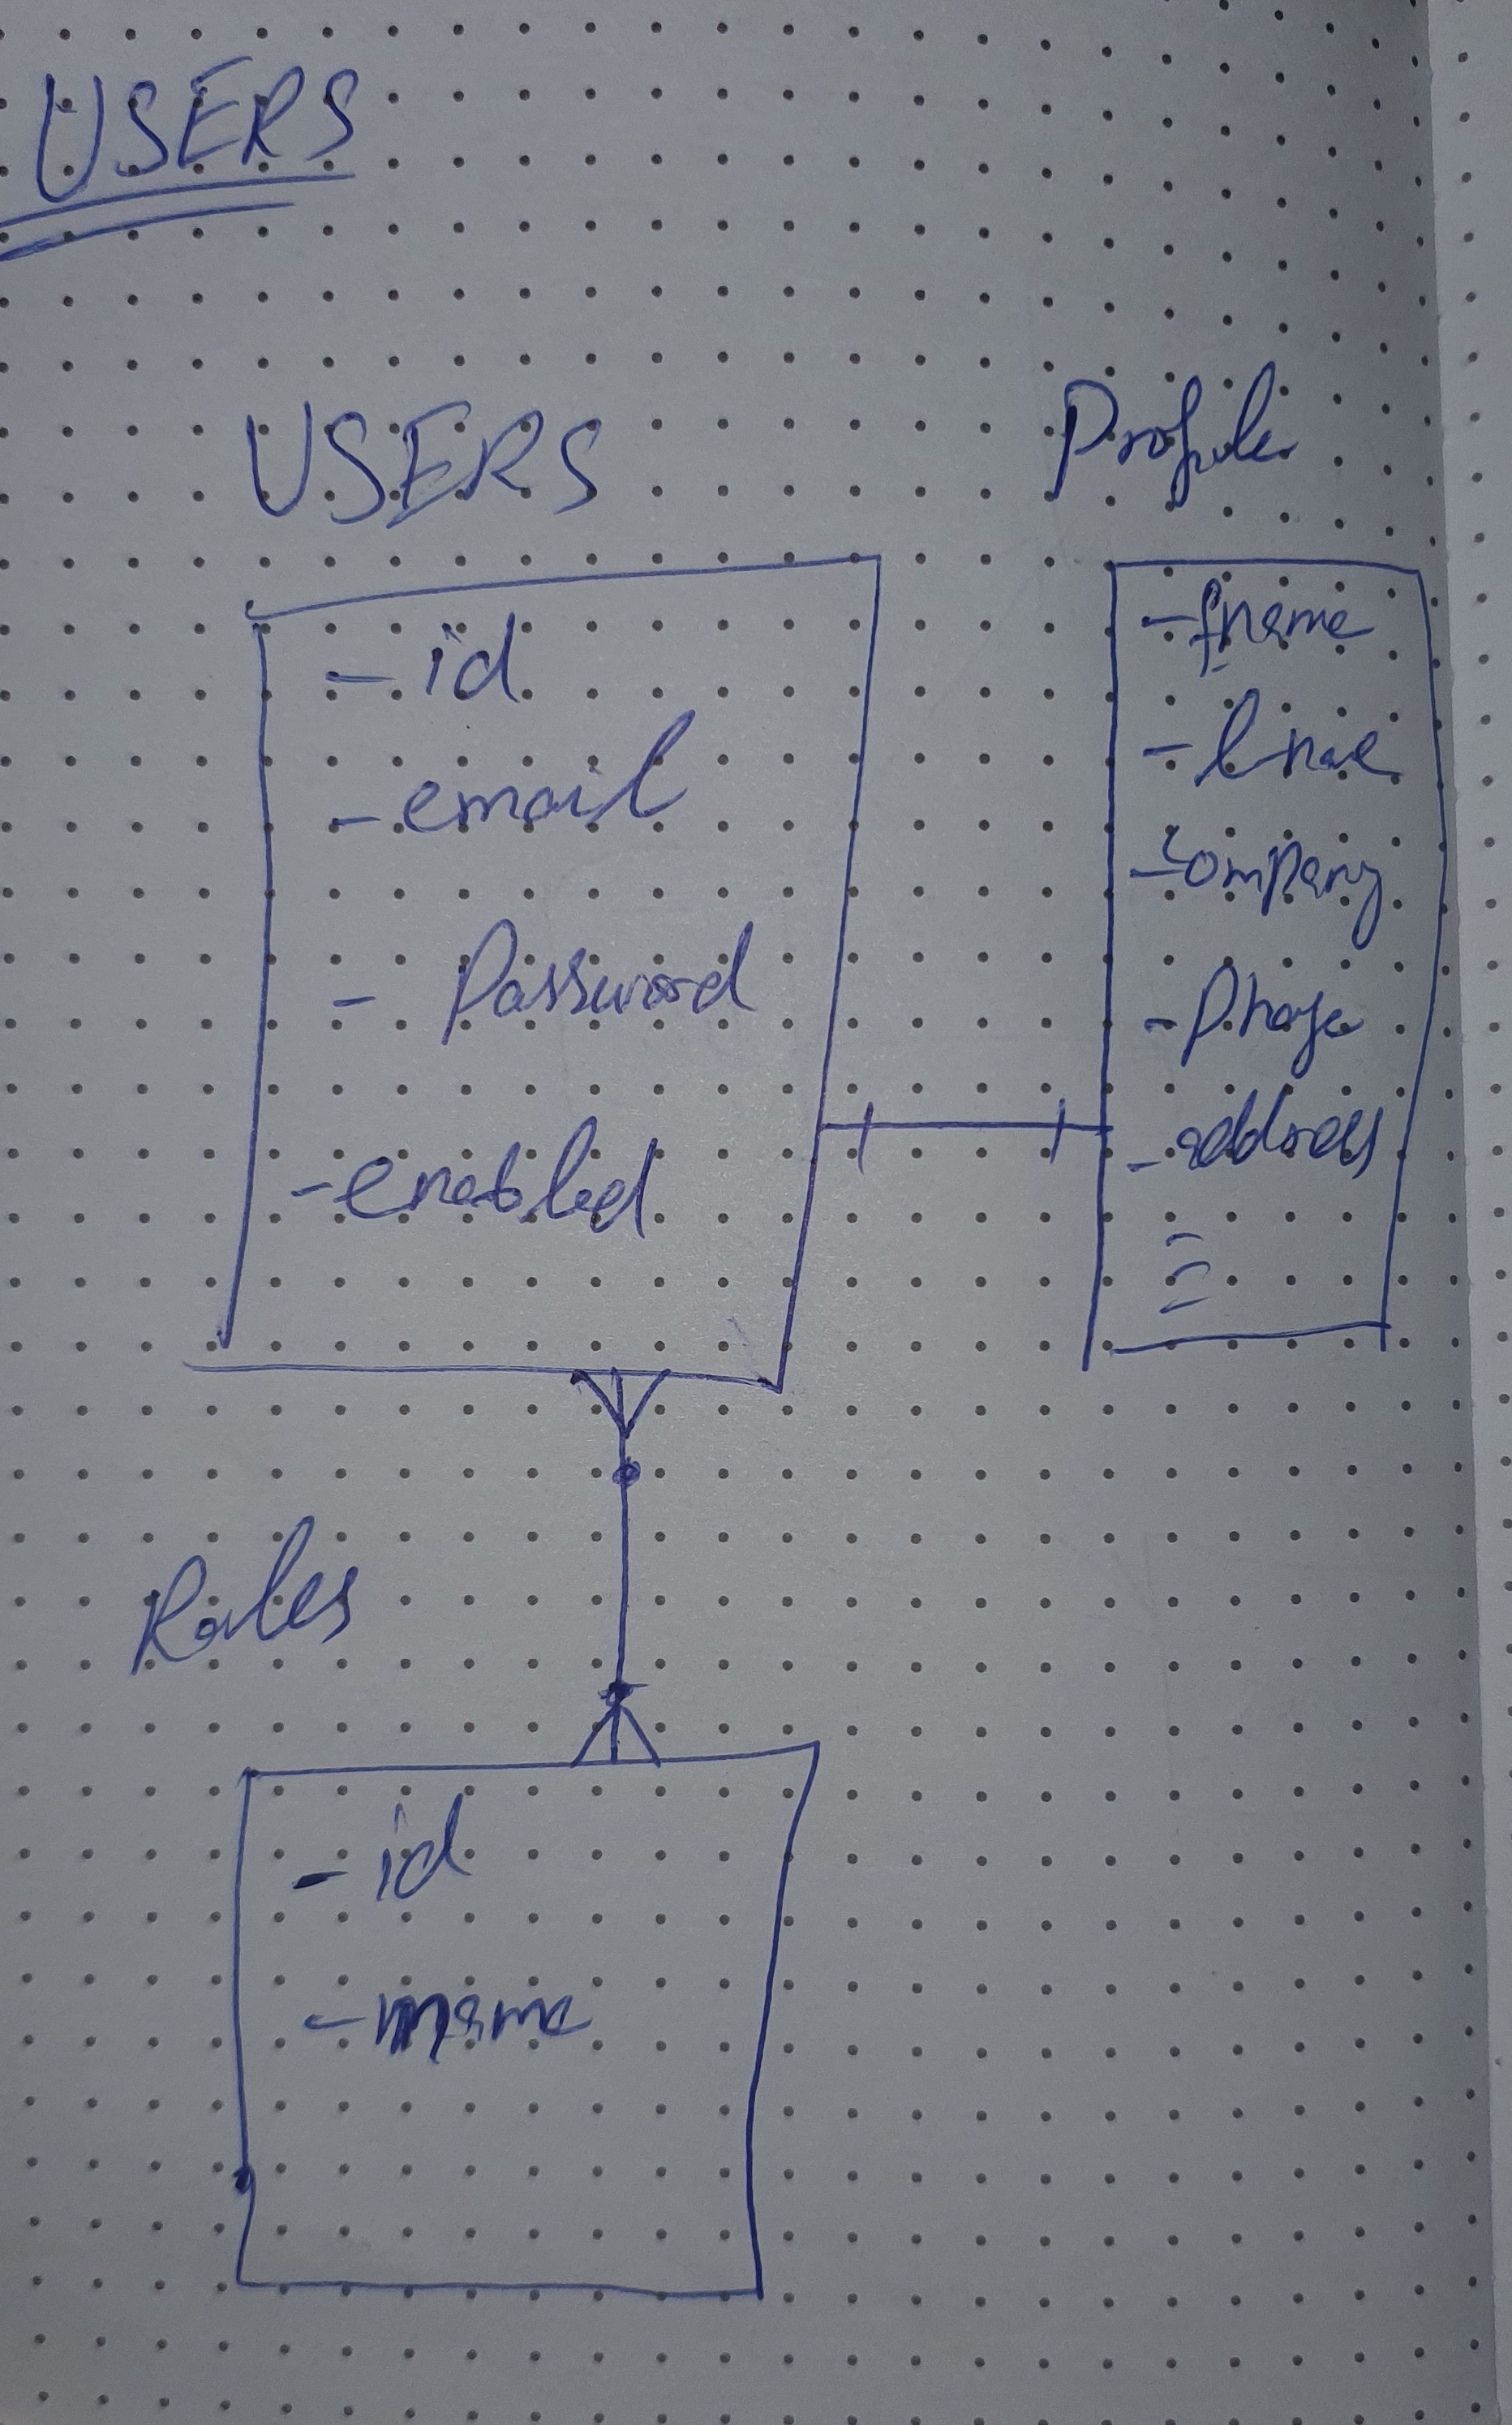 USERS
USERS
- id
- email
- Password
- enabled
Profile
- fname
- lnae
- company
- address
Roles
- id
- name